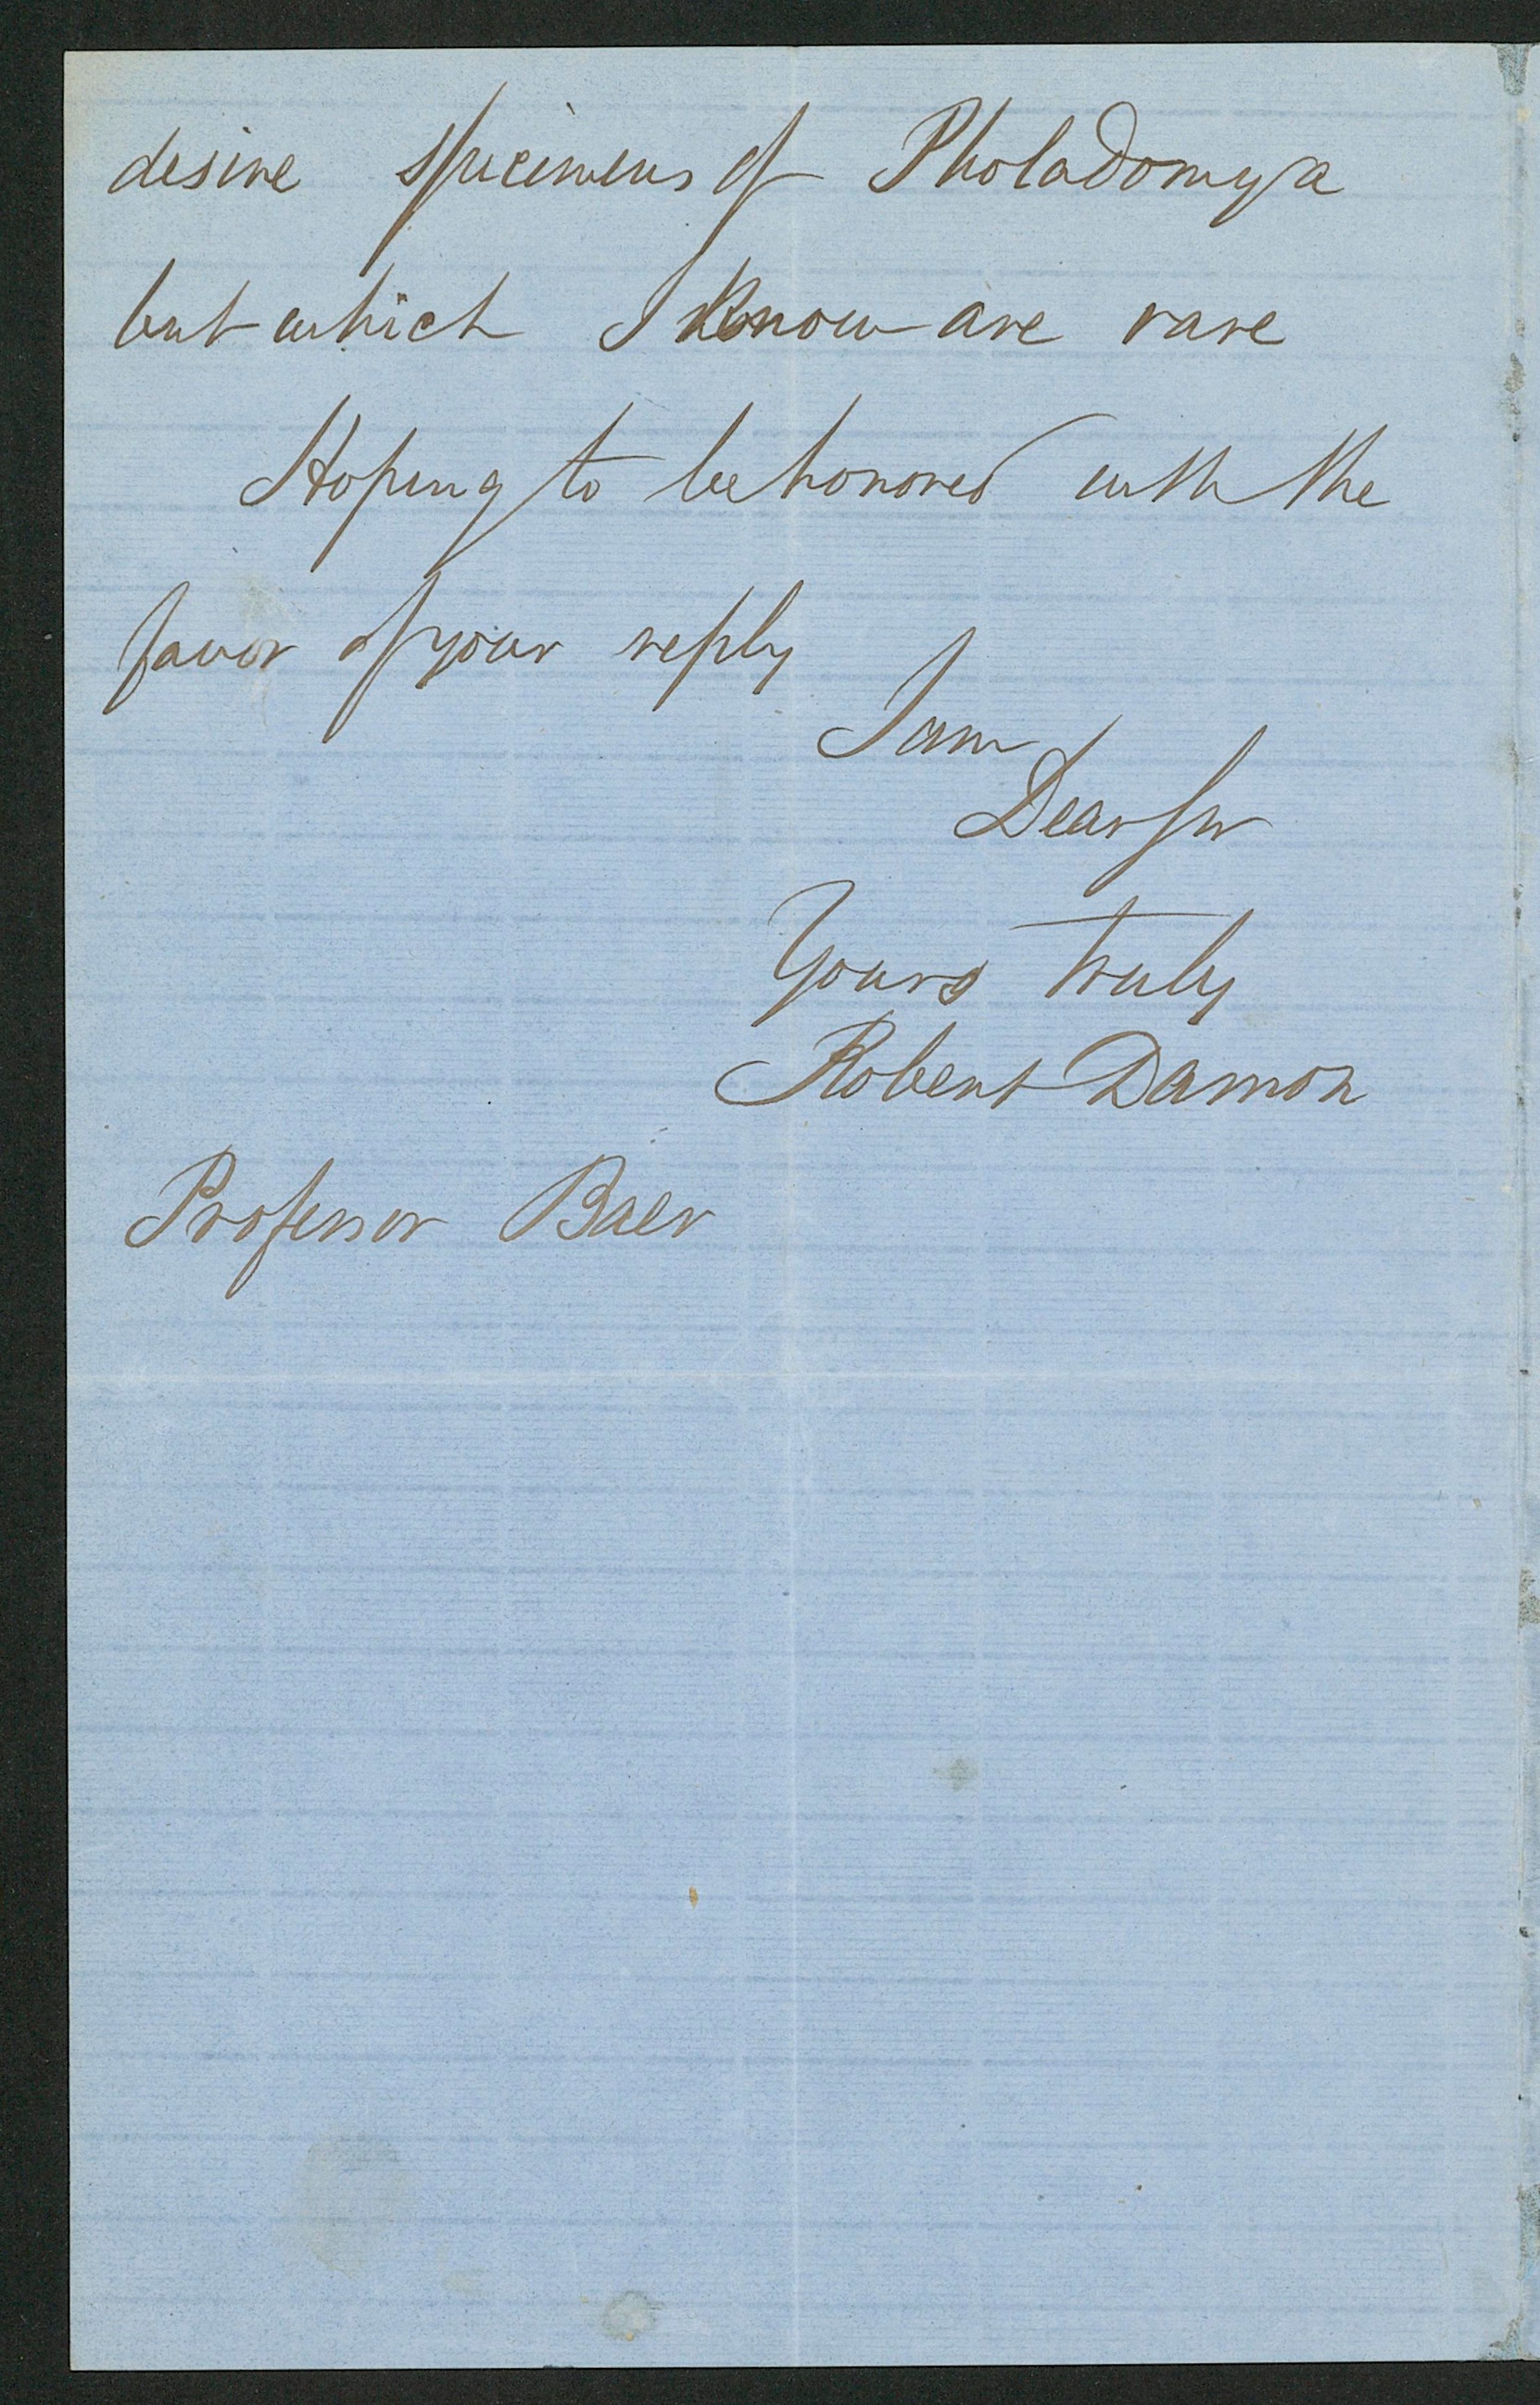 desire specimens of Pholadomya
but which I know are rare
Hoping to be honored with the
favor of your reply
I am
Dear Sir
Yours truly
Robert Damon
Professor Baer